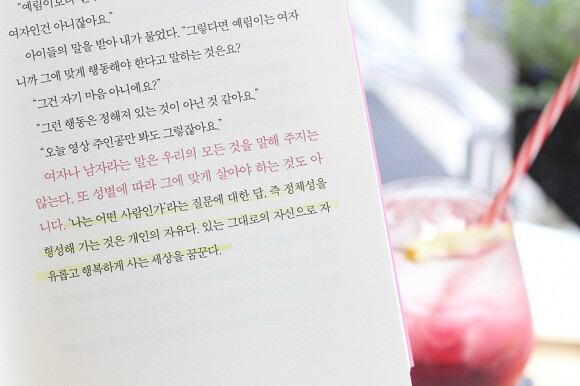 "예림이도
여자인건 아니잖아요."
아이들의 말을 받아 내가 물었다. "그렇다면 예림이는 여자
니까 그에 맞게 행동해야 한다고 말하는 것은요?
"그건 자기 마음 아니에요?"
"그런 행동은 정해져 있는 것이 아닌 것 같아요."
"오늘 영상 주인공만 봐도 그렇잖아요."
여자나 남자라는 말은 우리의 모든 것을 말해 주지는
않는다. 또 성별에 따라 그에 맞게 살아야 하는 것도 아
니다. '나는 어떤 사람인가'라는 질문에 대한 답, 즉 정체성을
형성해 가는 것은 개인의 자유다. 있는 그대로의 자신으로 자
유롭고 행복하게 사는 세상을 꿈꾼다.